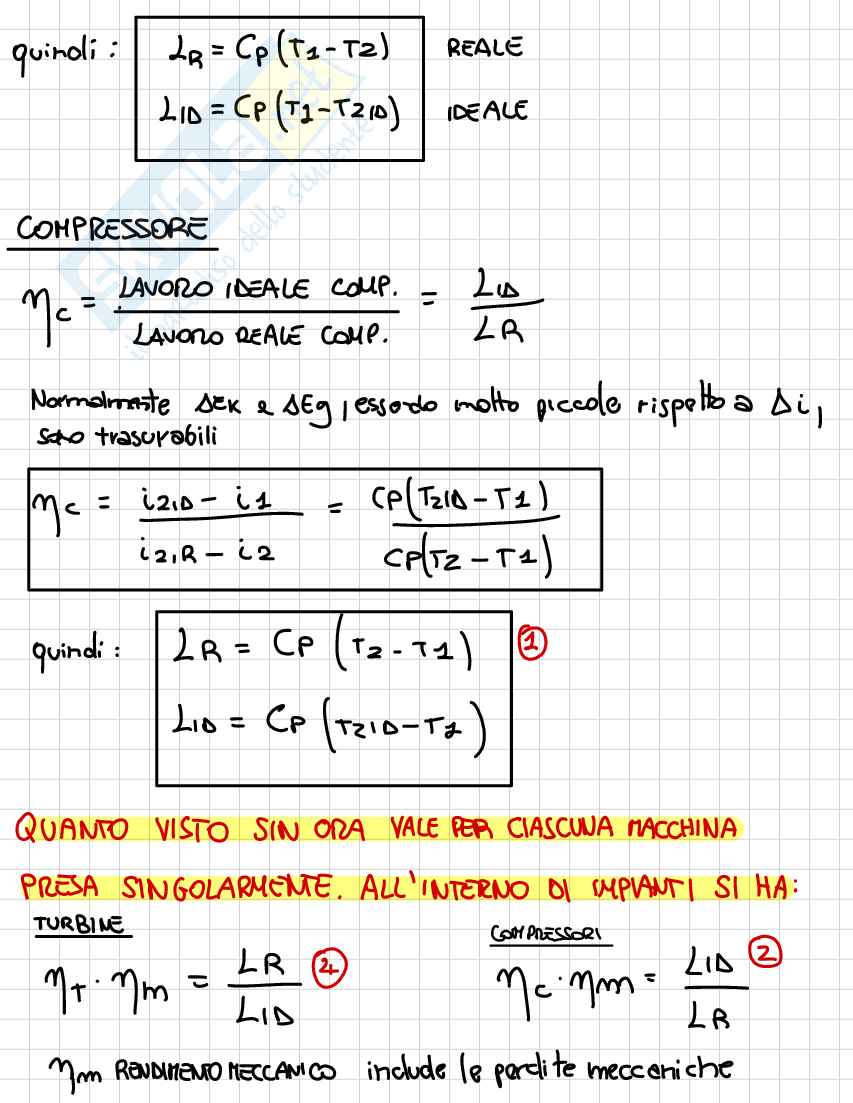 quindi: LR = Cp (T1-T2) REALE
LID = Cp (T1-T2ID) IDEALE
COMPRESSORE
ηc = LAVORO IDEALE COMP. / LAVORO REALE COMP. = LID / LR
Normalmente ΔEK e ΔEg, essendo molto piccole rispetto a Δi,
sono trascurabili
ηc = i2ID - i1 / i2,R - i2 = CP(T2ID - T1) / CP(T2 - T1)
quindi: LR = CP (T2 - T1) 1
LID = CP (T2ID - T1)
QUANTO VISTO SIN ORA VALE PER CIASCUNA MACCHINA
PRESA SINGOLARMENTE. ALL'INTERNO DI IMPIANTI SI HA:
TURBINE
ηT · ηm = LR / LID 4
COMPRESSORI
ηc · ηm = LID / LR 2
ηm RENDIMENTO MECCANICO include le perdite meccaniche
SKUOLA.net
il paradiso dello studente